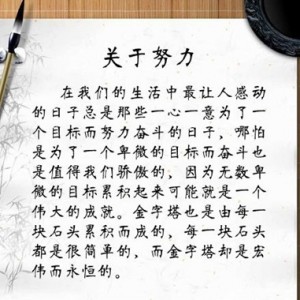 关于努力
在我们的生活中最让人感动
的日子总是那些一心一意为了一
个目标而努力奋斗的日子，哪怕
是为了一个卑微的目标而奋斗也
是值得我们骄傲的，因为无数卑
微的目标累积起来可能就是一个
伟大的成就。金字塔也是由每一
块石头累积而成的，每一块石头
都是很简单的，而金字塔却是宏
伟而永恒的。